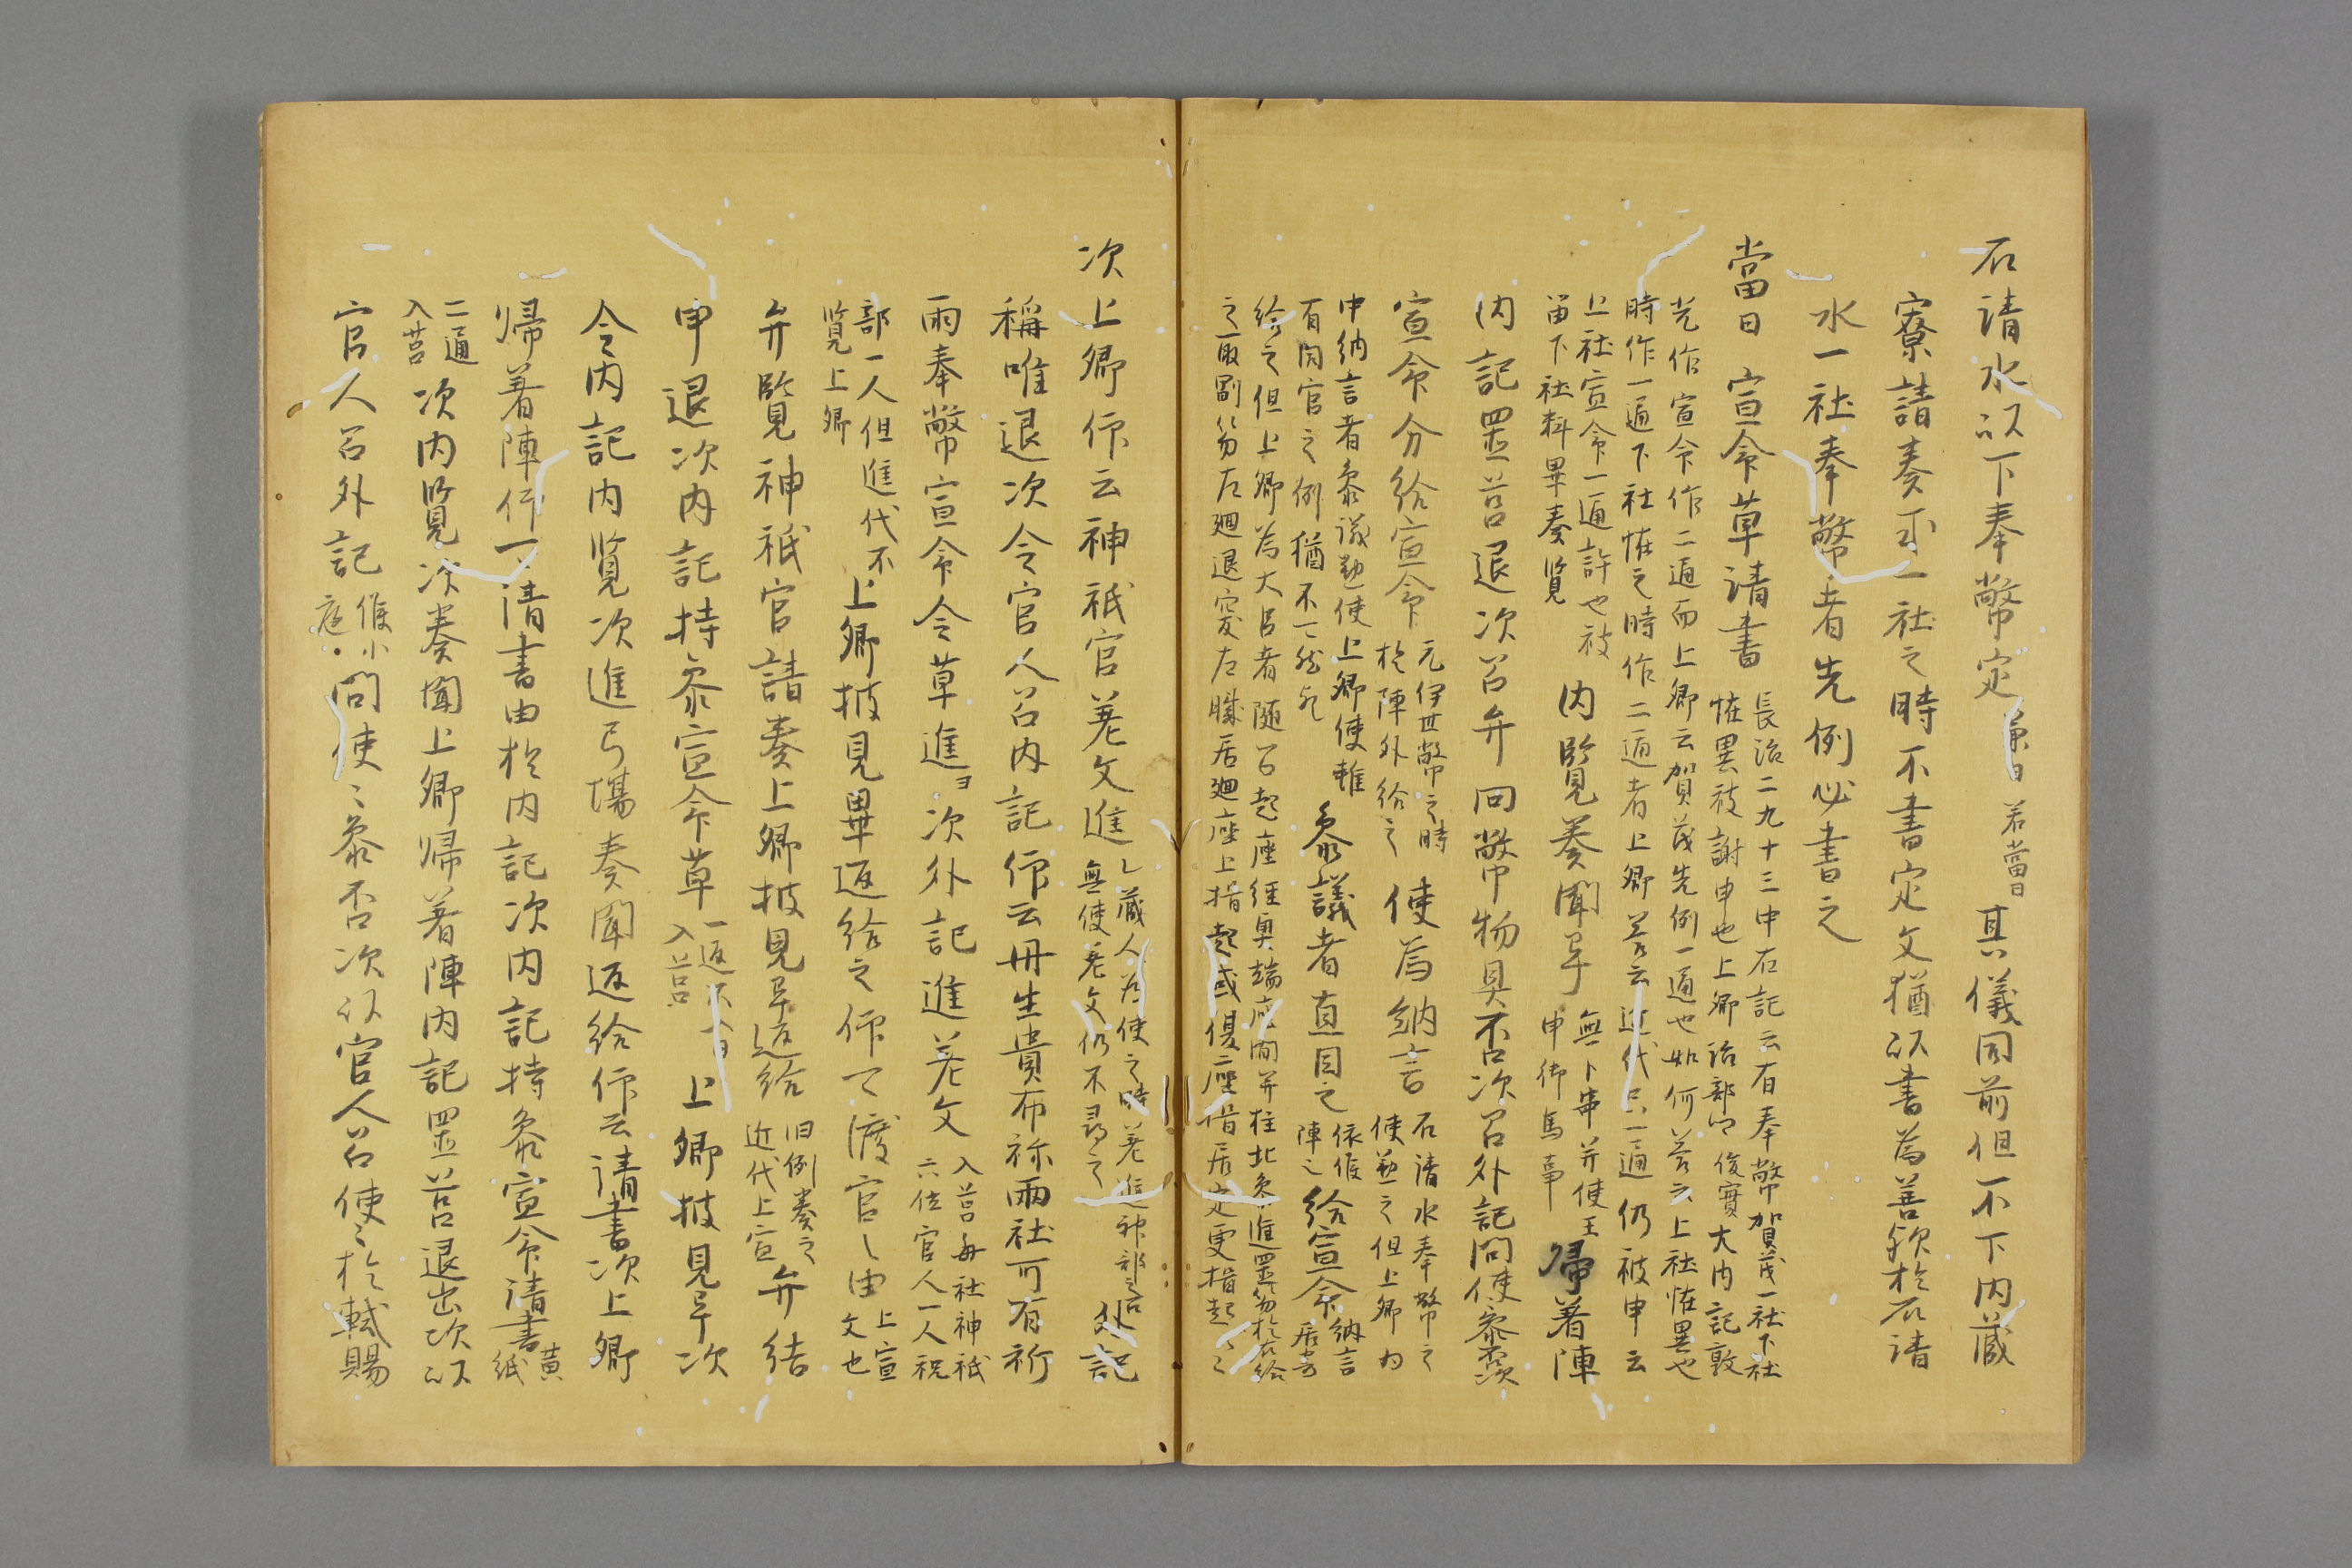 石請水以下奉幣定兼日若當日其儀同前但不下内蔵
寮請奏不一社之時不書定文猶以書為善歟於石清
水一社奉幣者先例必書之
當日宣命草請書長治二九十三中右記云有奉幣賀茂一社下社
恠異被謝申也上卿治部卿俊實大内記敦
光作宣命作二通而上卿云賀茂先例一通也如何答云上社恠異也
時作一通下社恠之時作二通者上卿答云近代只一通仍被申云
上社宣命一通許也被
留下社料畢奏覧
内覧奏聞畢
無卜串并使王
申御馬事
帰著陣
内記置莒退次召弁問幣物具否次召外記問使參否次
宣命分給宣命
元伊世幣之時
於陣外給之
使為納言
石清水奉幣之
使兼之但上卿為
中納言者參議勤使上卿使雖
有同官之例猶不可然歟
參議者直目之
依候
陣之
給宣命
納言
給之但上卿為大臣者随召起座経奥端座間并柱北參進置笏於右給
之取副笏左廻退突左膝居廻座上揖起或復座揖居定更揖起之
次上卿仰云神祇官差文進
蔵人為使之時差進神部
無使差文仍不尋之
外記
稱唯退次令官人召内記仰云丹生貴布祢兩社可有祈
雨奉幣宣命令草進ヨ次外記進差文
入莒毎社神祇
六位官人一人祝
部一人但進代不
覧上卿
上卿披見畢返給之仰可渡官由
上宣
文也
弁覧神祇官請奏上卿披見畢返給
旧例奏之
近代上宣
弁結
申退次内記持參宣命草
入莒
上卿披見畢次
令内記内覧次進弓場奏聞返給仰云請書次上卿
帰著陣仰可清書由於内記次内記持參宣命清書
黄
紙
二通
入莒
次内覧次奏聞上卿帰著陣内記置莒退出次以
官人召外記
候小
庭
問使〻參否次以官人召使〻於軾賜